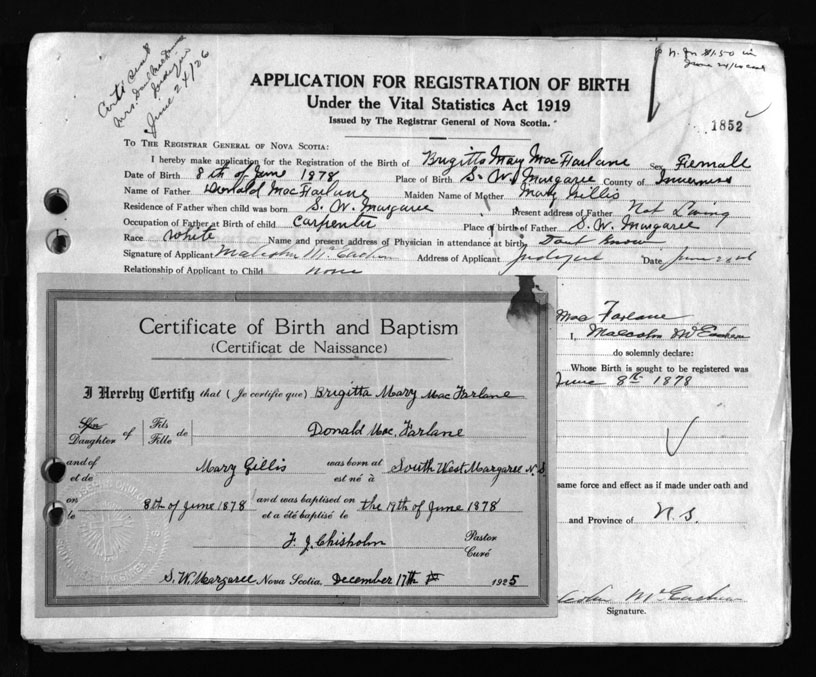 June 24/26
in $1.50 in
APPLICATION FOR REGISTRATION OF BIRTH
Under the Vital Statistics Act 1919
Issued by The Registrar General of Nova Scotia.
1852
To The Registrar General of Nova Scotia:
I hereby make application for the Registration of the Birth of Brigitta May MacFarlane Sex Female
Date of Birth 8th of June 1878 Place of Birth S. W. Margaree County of Inverness
Name of Father Donald MacFarlane Maiden Name of Mother Mary Gillis
Residence of Father when child was born S. W. Margaree Present address of Father Not Living
Occupation of Father at Birth of child Carpenter Place of birth of Father S. W. Margaree
Race White Name and present address of Physician in attendance at birth Dont Know
Signature of Applicant Malcolm McEachern Address of Applicant Date June
Relationship of Applicant to Child none
Mac Farlane
I, Malcolm McEachern
do solemnly declare:
Whose Birth is sought to be registered was
June 8th 1878
same force and effect as if made under oath and
and Province of N.S.
McEachern
Signature.
Certificate of Birth and Baptism
(Certificat de Naissance)
I Hereby Certify that (Je certifie que) Brigitta Mary Mac Farlane
Son Daughter of Fils Fille de Donald Mac. Farlane
and of et de Mary Gillis was born at est né à South West Margaree N.S.
on le 8th of June 1878 and was baptised on et a été baptisé le the 17th of June 1878
F. J. Chisholm Pastor Curé
S. W. Margaree Nova Scotia, December 17th 1925